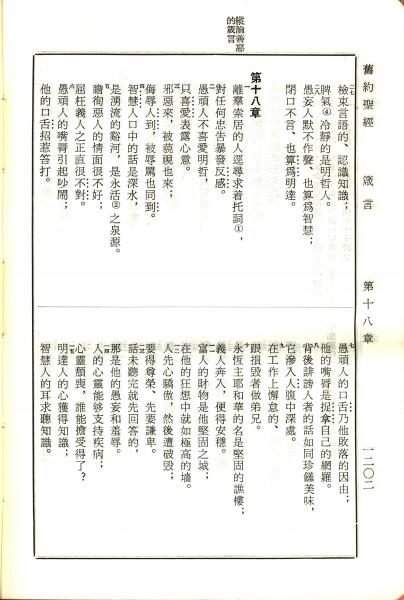 舊約聖經 箴言 第十八章 一二〇二
縱論善惡
的箴言
二七
檢束言語的、認識知識;
脾氣④冷靜的是明哲人。
二八
愚妄人默不作聲、也算爲智慧;
閉口不言、也算爲明達。
第十八章
一
離羣索居的人逕尋求着托詞①,
對任何忠告暴發反感。
二
愚頑人不喜愛明哲,
只喜愛表露心意。
三
邪惡來,被藐視也來;
侮辱人到,被辱罵也同到。
四
智慧人口中的話是深水,
是湧流的谿河,是永活②之泉源。
五
瞻徇惡人的情面很不好;
屈枉義人之正直很不對。
六
愚頑人的嘴脣引起吵鬧;
他的口舌招惹笞打。
七
愚頑人的口舌乃他敗落的因由;
他的嘴脣是捉拿自己的網羅。
八
背後誹謗人者的話如同珍饈美味,
它滲入人腹中深處。
九
在工作上懈怠的、
跟損毀者做弟兄。
十
永恆主耶和華的名是堅固的譙樓;
義人奔入,便得安穩。
十一
富人的財物是他堅固之城;
在他的狂想中就如極高的墻。
十二
人先心驕傲,然後遭破毀;
要得尊榮、先要謙卑。
十三
話未聽完就先回答的,
那是他的愚妄和羞辱。
十四
人的心靈能够支持疾病;
心靈頹喪,誰能擔受得了?
十五
明達人的心獲得知識;
智慧人的耳求聽知識。